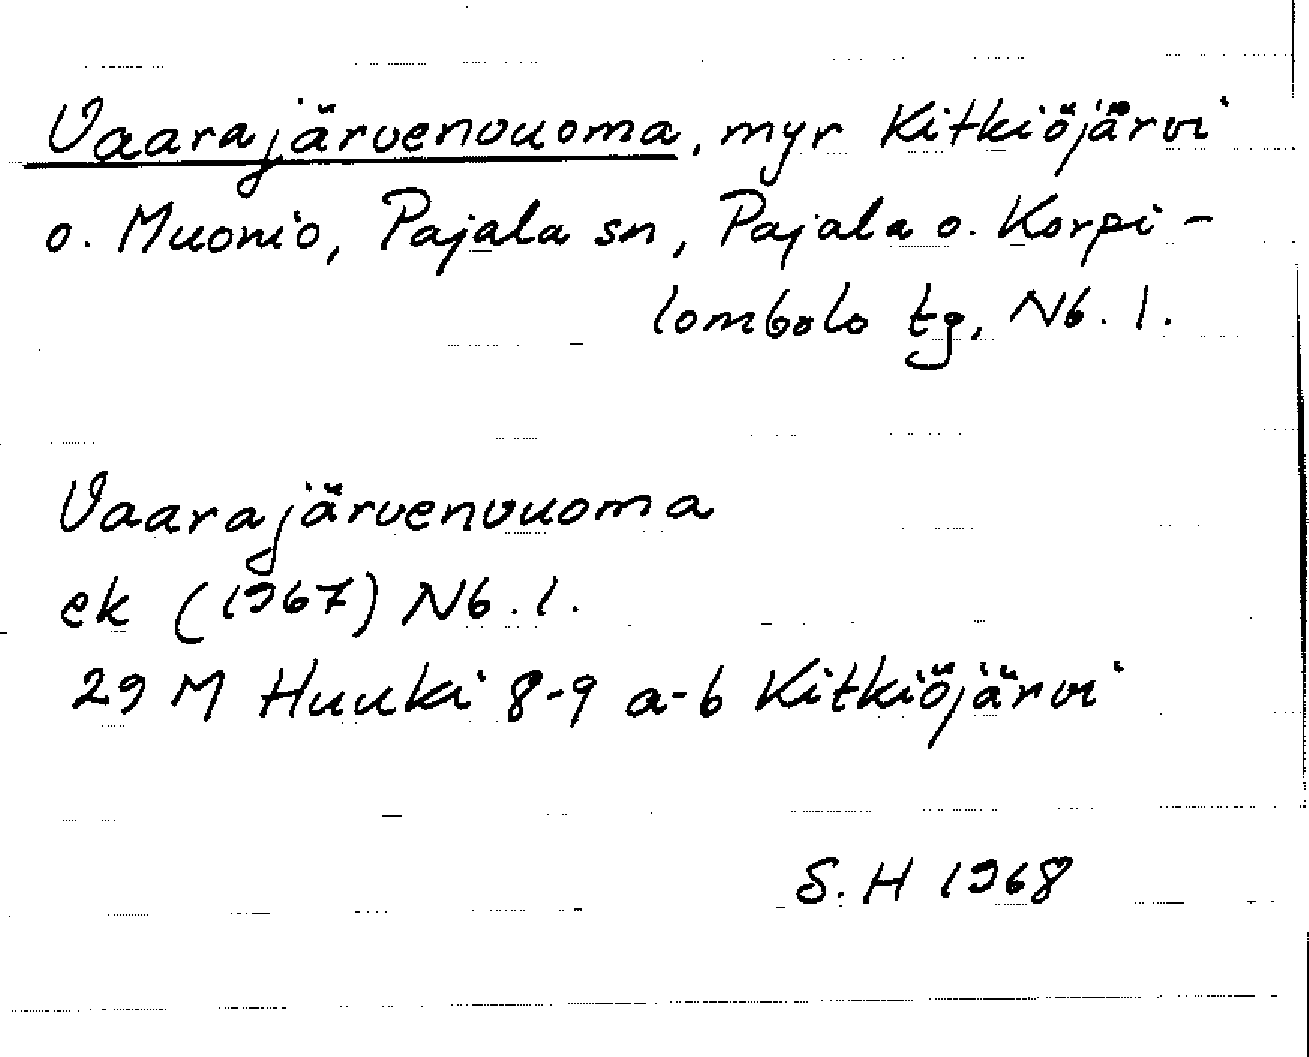 Vaarajärvenvuoma, myr Kitkiöjärvi
o. Muonio, Pajala sn, Pajala o. Korpi-
lombolo tg, Nb. l.
Vaarajärvenvuoma
ek (1967) Nb. l.
29 M Huuki 8-9 a-b Kitkiöjärvi
S. H 1968